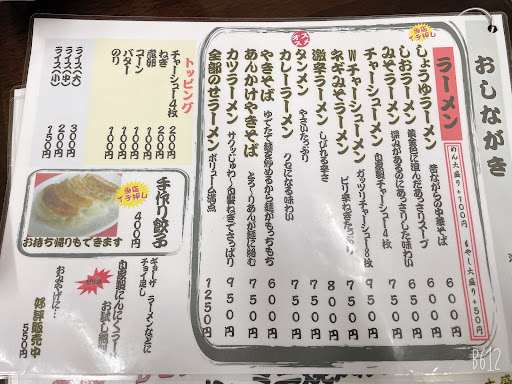 おしながき
ラーメン
めん大盛り+100円 もやし大盛り+50円
当店イチ押し
しょうゆラーメン 昔ながらの中華そば 600円
しおラーメン 黄金色に澄んだあっさりスープ 600円
みそラーメン 深みがあるのにあっさりした味わい
チャーシューメン 自家製チャーシュー4枚
Wチャーシューメン ガッツリチャーシュー8枚
ネギみそラーメン ピリ辛ねぎたっぷり 800円
激辛ラーメン しびれる辛さ
オススメ
タンメン やさいたっぷり
カレーラーメン クセになる味わい
やきそば ゆでたて麺を炒めるから麺がもっちもち 600円
あんかけやきそば とろ〜りあんが麺に絡む 750円
カツラーメン サクッじゅわ〜自製ねぎでさっぱり 950円
全部のせラーメン ボリューム満点 1250円
トッピング
チャーシュー4枚 200円
ねぎ 200円
煮卵 100円
コーン 100円
バター 100円
のり 100円
ライス(大) 300円
ライス(中) 200円
ライス(小) 150円
当店イチ押し
手作り餃子 400円
お持ち帰りもできます
ギョーザ ラーメンなどに
チョイ足し
自家製にんにくラー
お試し無料
おみやげに…
好評販売中
550円
B612